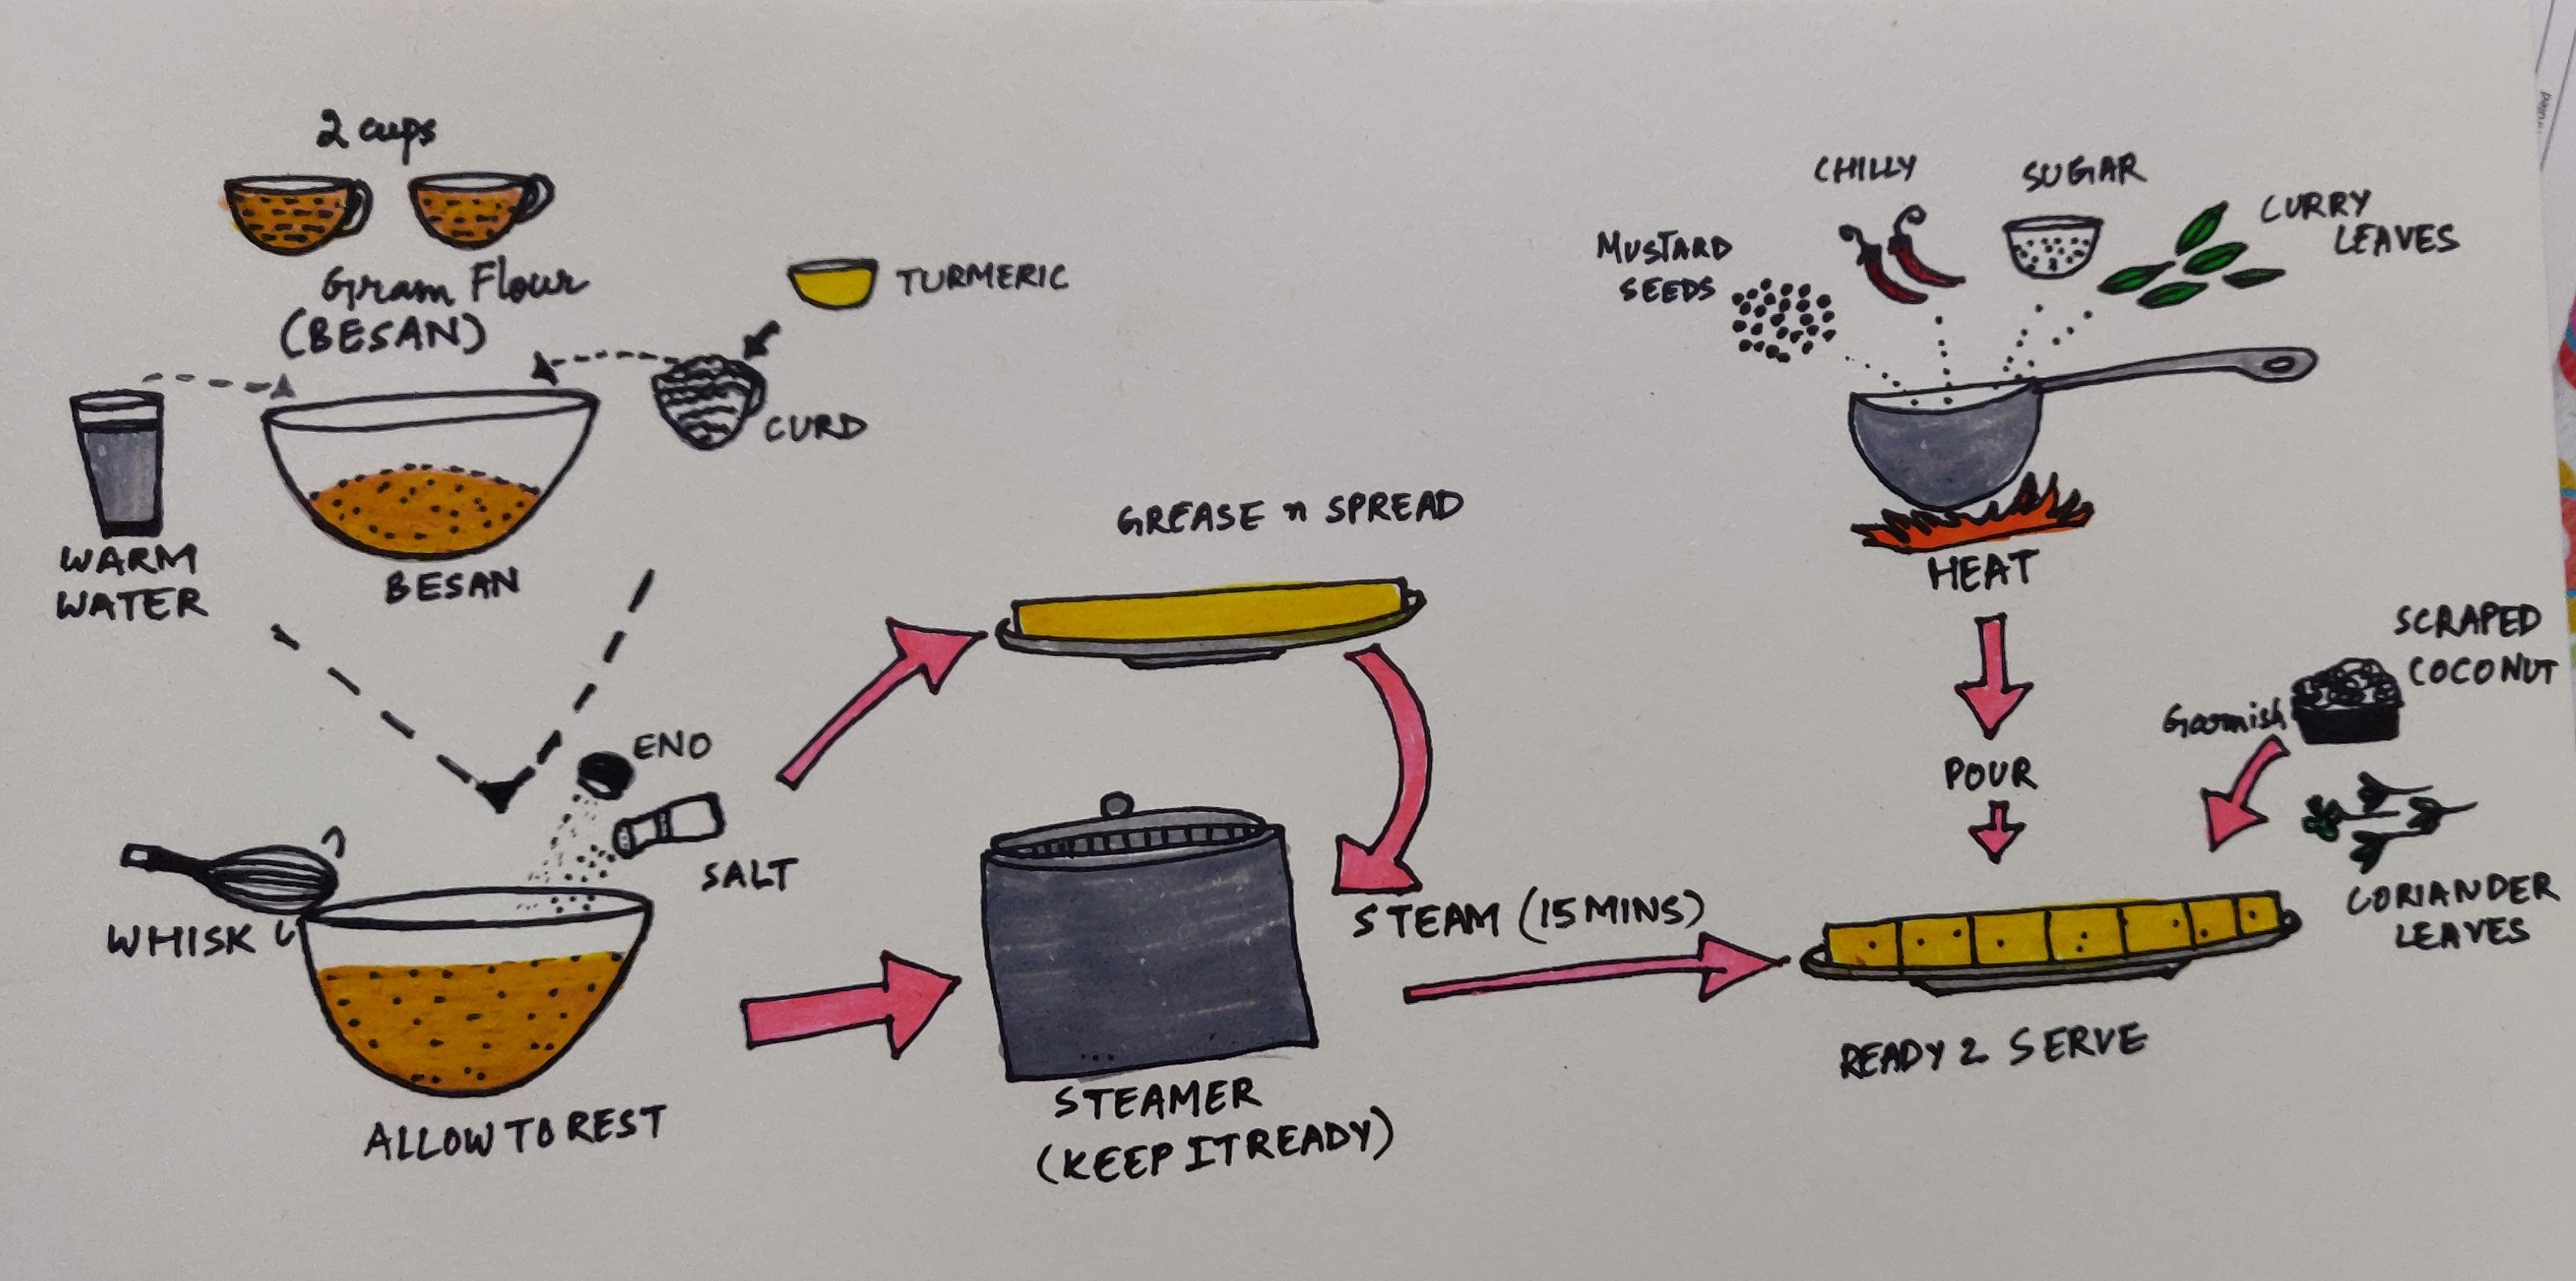 2 cups
Gram Flour
(BESAN)
TURMERIC
CURD
WARM
WATER
BESAN
ENO
SALT
WHISK
ALLOW TO REST
GREASE n SPREAD
STEAMER
(KEEP IT READY)
STEAM (15 MINS)
MUSTARD
SEEDS
CHILLY
SUGAR
CURRY
LEAVES
HEAT
POUR
SCRAPED
COCONUT
Garnish
CORIANDER
LEAVES
READY 2 SERVE